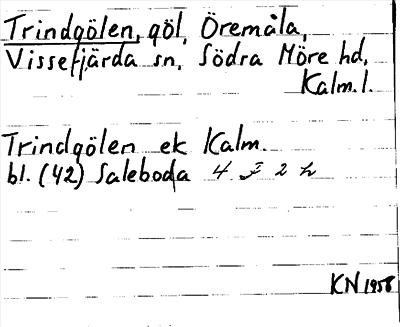 Trindgölen, göl, Öremåla,
Vissefjärda sn, Södra Möre hd,
Kalm. l.
Trindgölen ek Kalm.
bl. (42) Saleboda 4 F 2 h
KN 1958